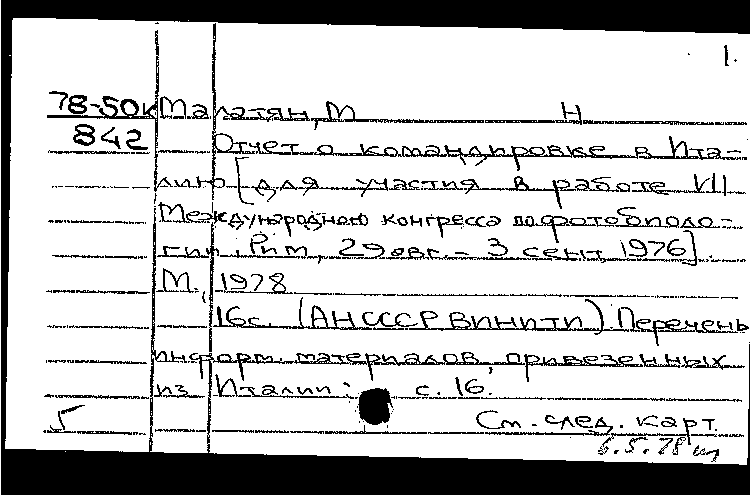 1.
78-50к Малатян, М Н
842 Отчет о командировке в Ита-
лию [для участия в работе VII
Международного конгресса по фотобиоло-
гии, Рим, 29 авг. - 3 сент, 1976].
М., 1978
16с. (АН СССР ВИНИТИ). Перечень
информ. материалов, привезенных
из Италии: с. 16.
5 См. след. карт.
6.5.78